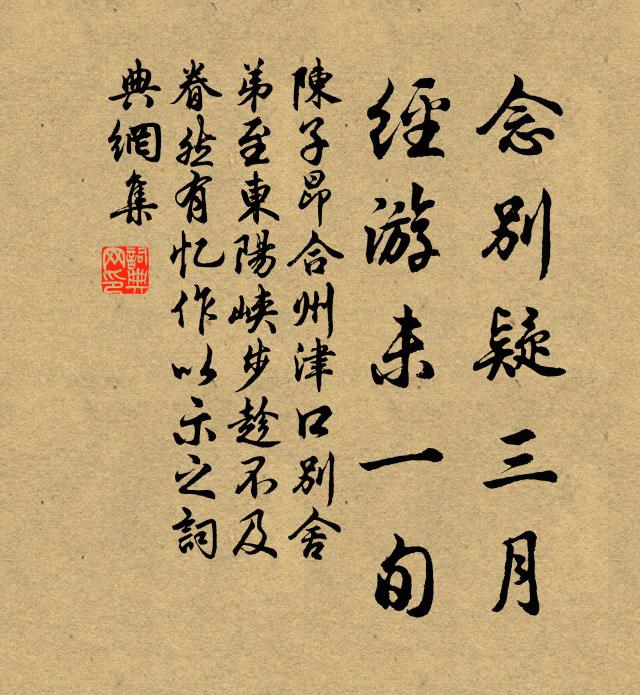 念别疑三月
經游未一旬
陳子昂合州津口别舍
弟至東陽峽步趁不及
眷然有忆作以示之詞
典網集
詞典
网印